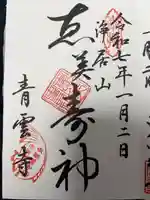 令和七年一月二日
浄居山
恵美寿神
青雲寺